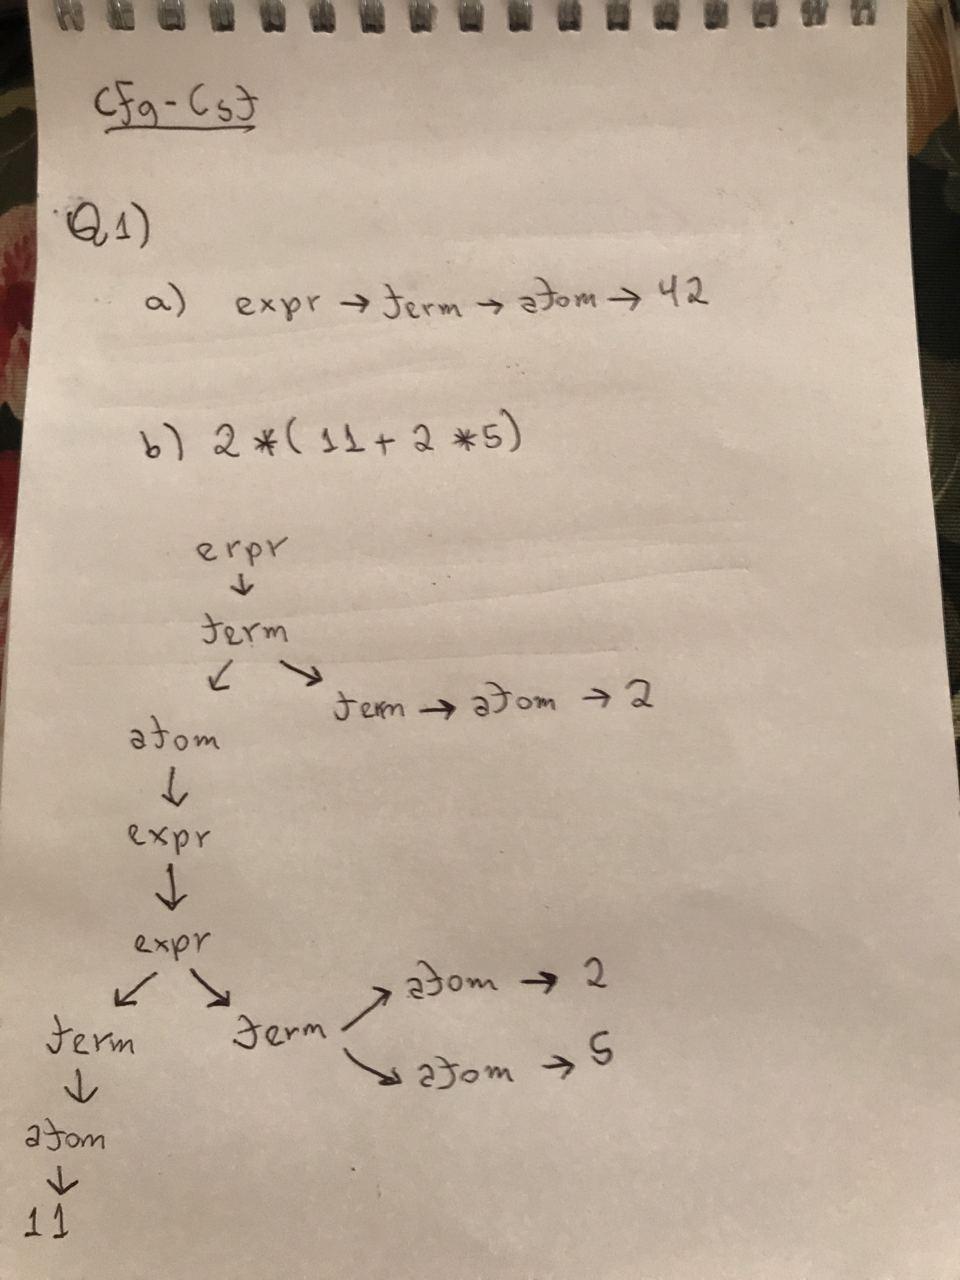 Cfg-Cst
Q1)
a) expr → term → atom → 42
b) 2 * ( 11 + 2 * 5 )
erpr
↓
term
↙ ↘
term → atom → 2
atom
↓
expr
↓
expr
↙ ↘
atom → 2
term term
atom → 5
↓
atom
↓
11